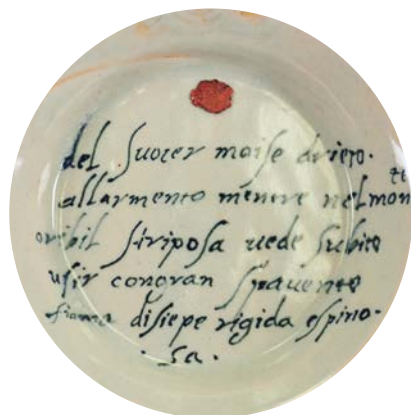 del Suocer moise drieto·
te
allarmento mentre nelmon
oribil siriposa uede subito
usir congran spauento
fiama disiepe rigida espino·
·sa·